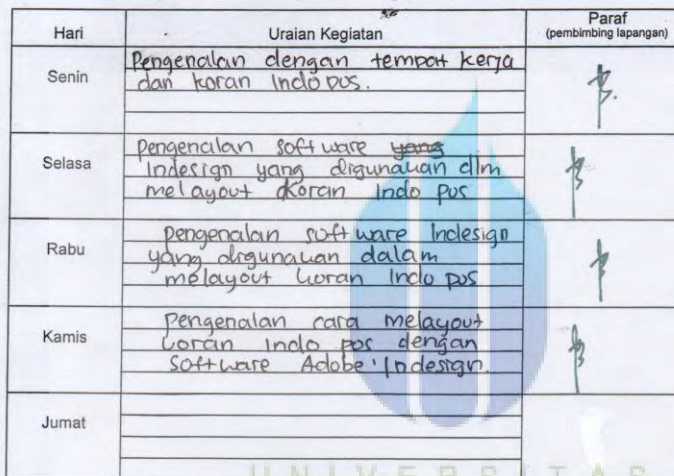 Hari Uraian Kegiatan Paraf
(pembimbing lapangan)
Senin
Pengenalan dengan tempat kerja
dan koran Indo pos.
Selasa
Pengenalan software yang
Indesign yang digunakan dlm
melayout koran Indo pos
Rabu
pengenalan software Indesign
yang digunakan dalam
melayout koran Indo pos
Kamis
Pengenalan cara melayout
koran Indo pos dengan
software Adobe Indesign
Jumat
UNIVERSITAS